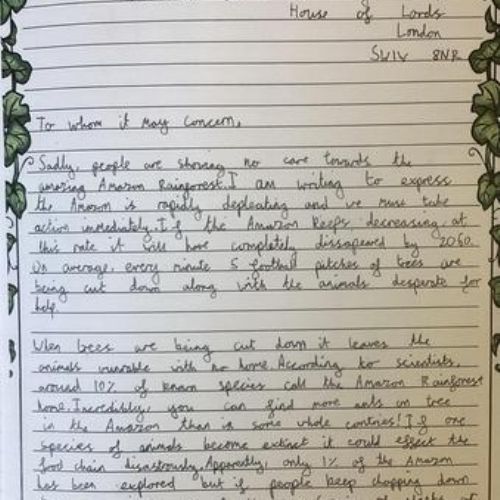 House of Lords
London
SW1V 8NR
To whom it May Concern,
Sadly, people are showing no care towards the
amazing Amazon Rainforest. I am writing to express
the Amazon is rapidly depleating and we must take
action immediately. If the Amazon keeps decreasing at
this rate it will have completely dissapeared by 2050.
On average, every minute 5 football pitches of trees are
being cut down along with the animals desperate for
help.
When trees are being cut down it leaves the
animals vunrable with no home. According to scientists,
around 10% of known species call the Amazon Rainforest
home. Incredibly, you can find more ants on tree
in the Amazon than in some whole contries! If one
species of animals become extinct it could effect the
food chain disastrously. Apparently, only 1% of the Amazon
has been explored but if people keep chopping down